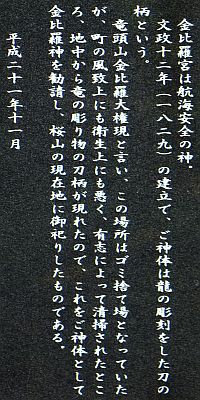 金比羅宮は航海安全の神。
文政十二年（一八二九）の建立で、ご神体は龍の彫刻をした刀の
柄という。
竜頭山金比羅大権現と言い、この場所はゴミ捨て場となっていた
が、町の風致上にも衛生上にも悪く、有志によって清掃されたとこ
ろ、地中から竜の彫り物の刀柄が現れたので、これをご神体として
金比羅神を勧請し、桜山の現在地に御祀りしたものである。
平成二十一年十一月